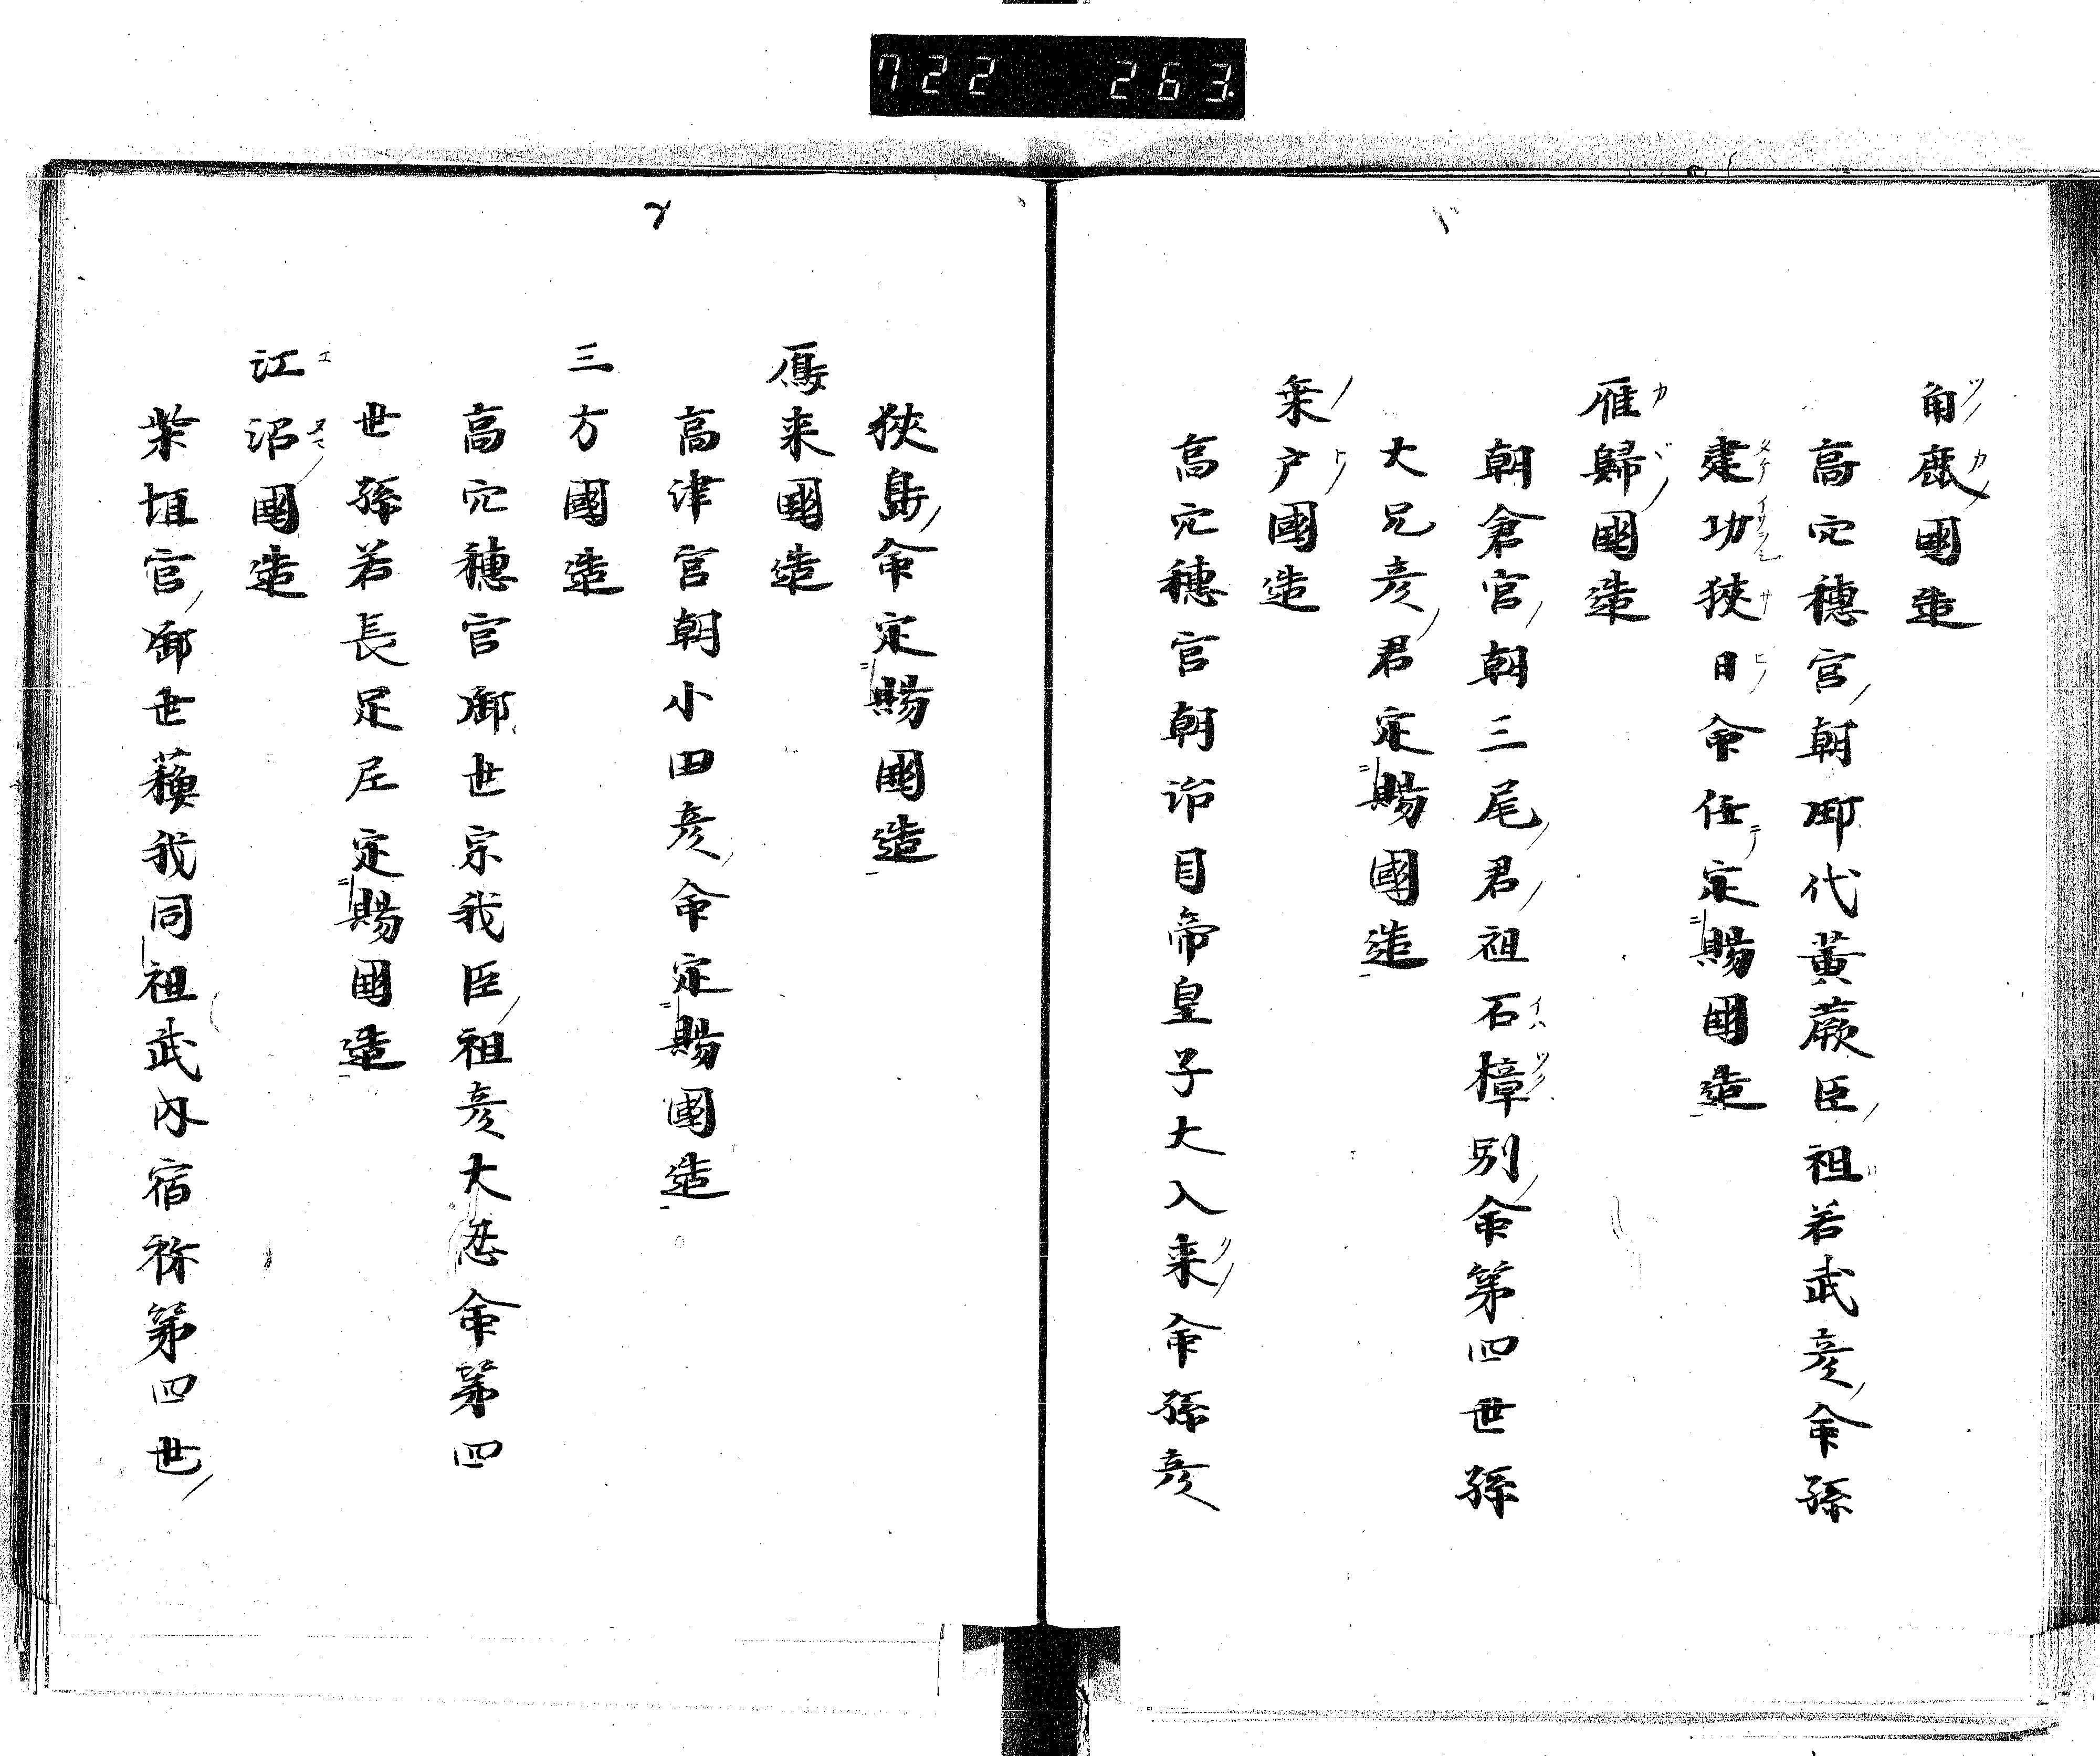 722 263
角鹿國造
高穴穗宮朝御代黃蕨臣祖若武彦命孫
建功狹日命任定賜國造
雁歸國造
朝倉宮朝三尾君祖石橦別命第四世孫
大兄彦君定賜國造
乗户國造
高穴穗宮朝詔目帝皇子大入来命孫彦
狹島命定賜國造
鴈来國造
高津宮朝小田彦命定賜國造
三方國造
高穴穗宮御世宗我臣祖彦大忍命第四
世孫若長足尼定賜國造
江沼國造
柴垣宮御世蘓我同祖武内宿祢第四世